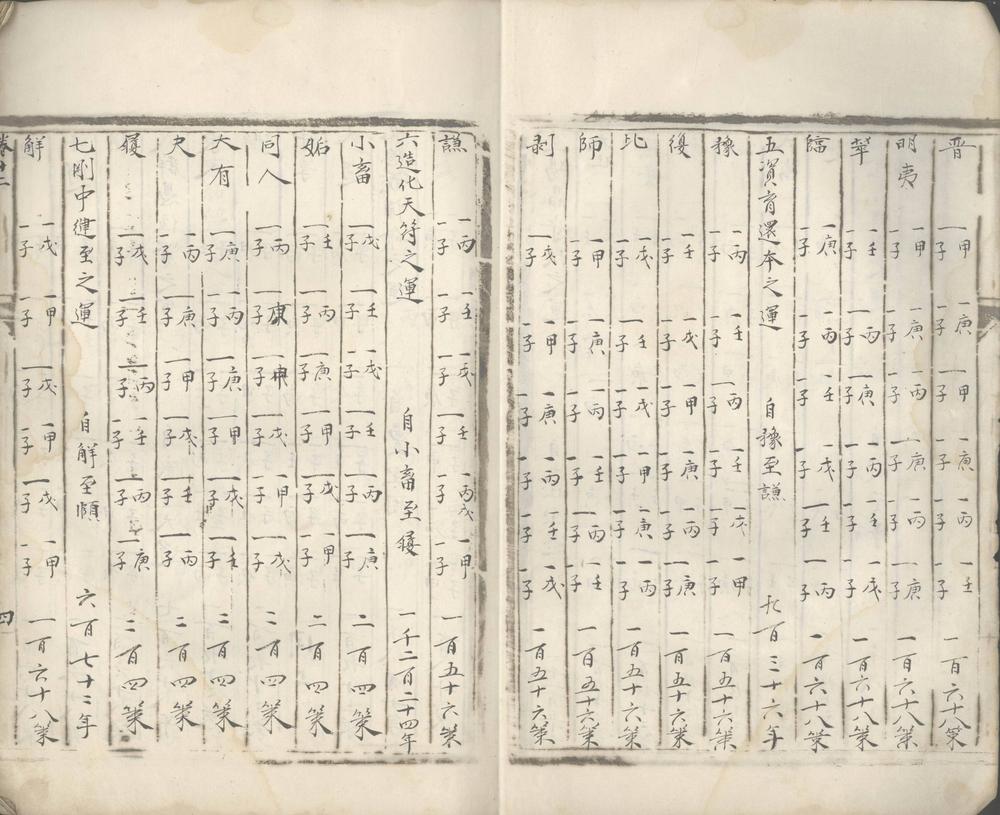 晋 一甲子 一庚子 一甲子 一庚子 一丙子 一壬子 一百六十八策
明夷 一甲子 一庚子 一丙子 一庚子 一丙子 一庚子 一百六十八策
萃 一壬子 一丙子 一庚子 一丙子 一壬子 一戊子 一百六十八策
臨 一庚子 一丙子 一壬子 一戊子 一壬子 一丙子 一百六十八策
五資育還本之運 自豫至謙 九百三十六年
豫 一丙子 一壬子 一丙子 一壬子 一戊子 一甲子 一百五十六策
復 一壬子 一戊子 一甲子 一庚子 一丙子 一庚子 一百五十六策
比 一戊子 一壬子 一戊子 一甲子 一庚子 一丙子 一百五十六策
師 一甲子 一庚子 一丙子 一壬子 一丙子 一壬子 一百五十六策
剥 一戊子 一甲子 一庚子 一丙子 一壬子 一戊子 一百五十六策
謙 一丙子 一壬子 一戊子 一壬子 一丙戊子 一甲子 一百五十六策
六造化天符之運 自小畜至履 一千二百二十四年
小畜 一戊子 一壬子 一戊子 一壬子 一丙子 一庚子 二百四策
姤 一壬子 一丙子 一庚子 一甲子 一戊子 一甲子 二百四策
同人 一丙子 一庚子 一甲子 一戊子 一甲子 一戊子 二百四策
大有 一庚子 一丙子 一庚子 一甲子 一戊子 一壬子 二百四策
夬 一丙子 一庚子 一甲子 一戊子 一壬子 一丙子 二百四策
履 一戊子 一壬子 一丙子 一壬子 一丙子 一庚子 二百四策
七剛中健至之運 自解至頤 六百七十二年
解 一戊子 一甲子 一戊子 一甲子 一戊子 一甲子 一百六十八策
卷十二 四